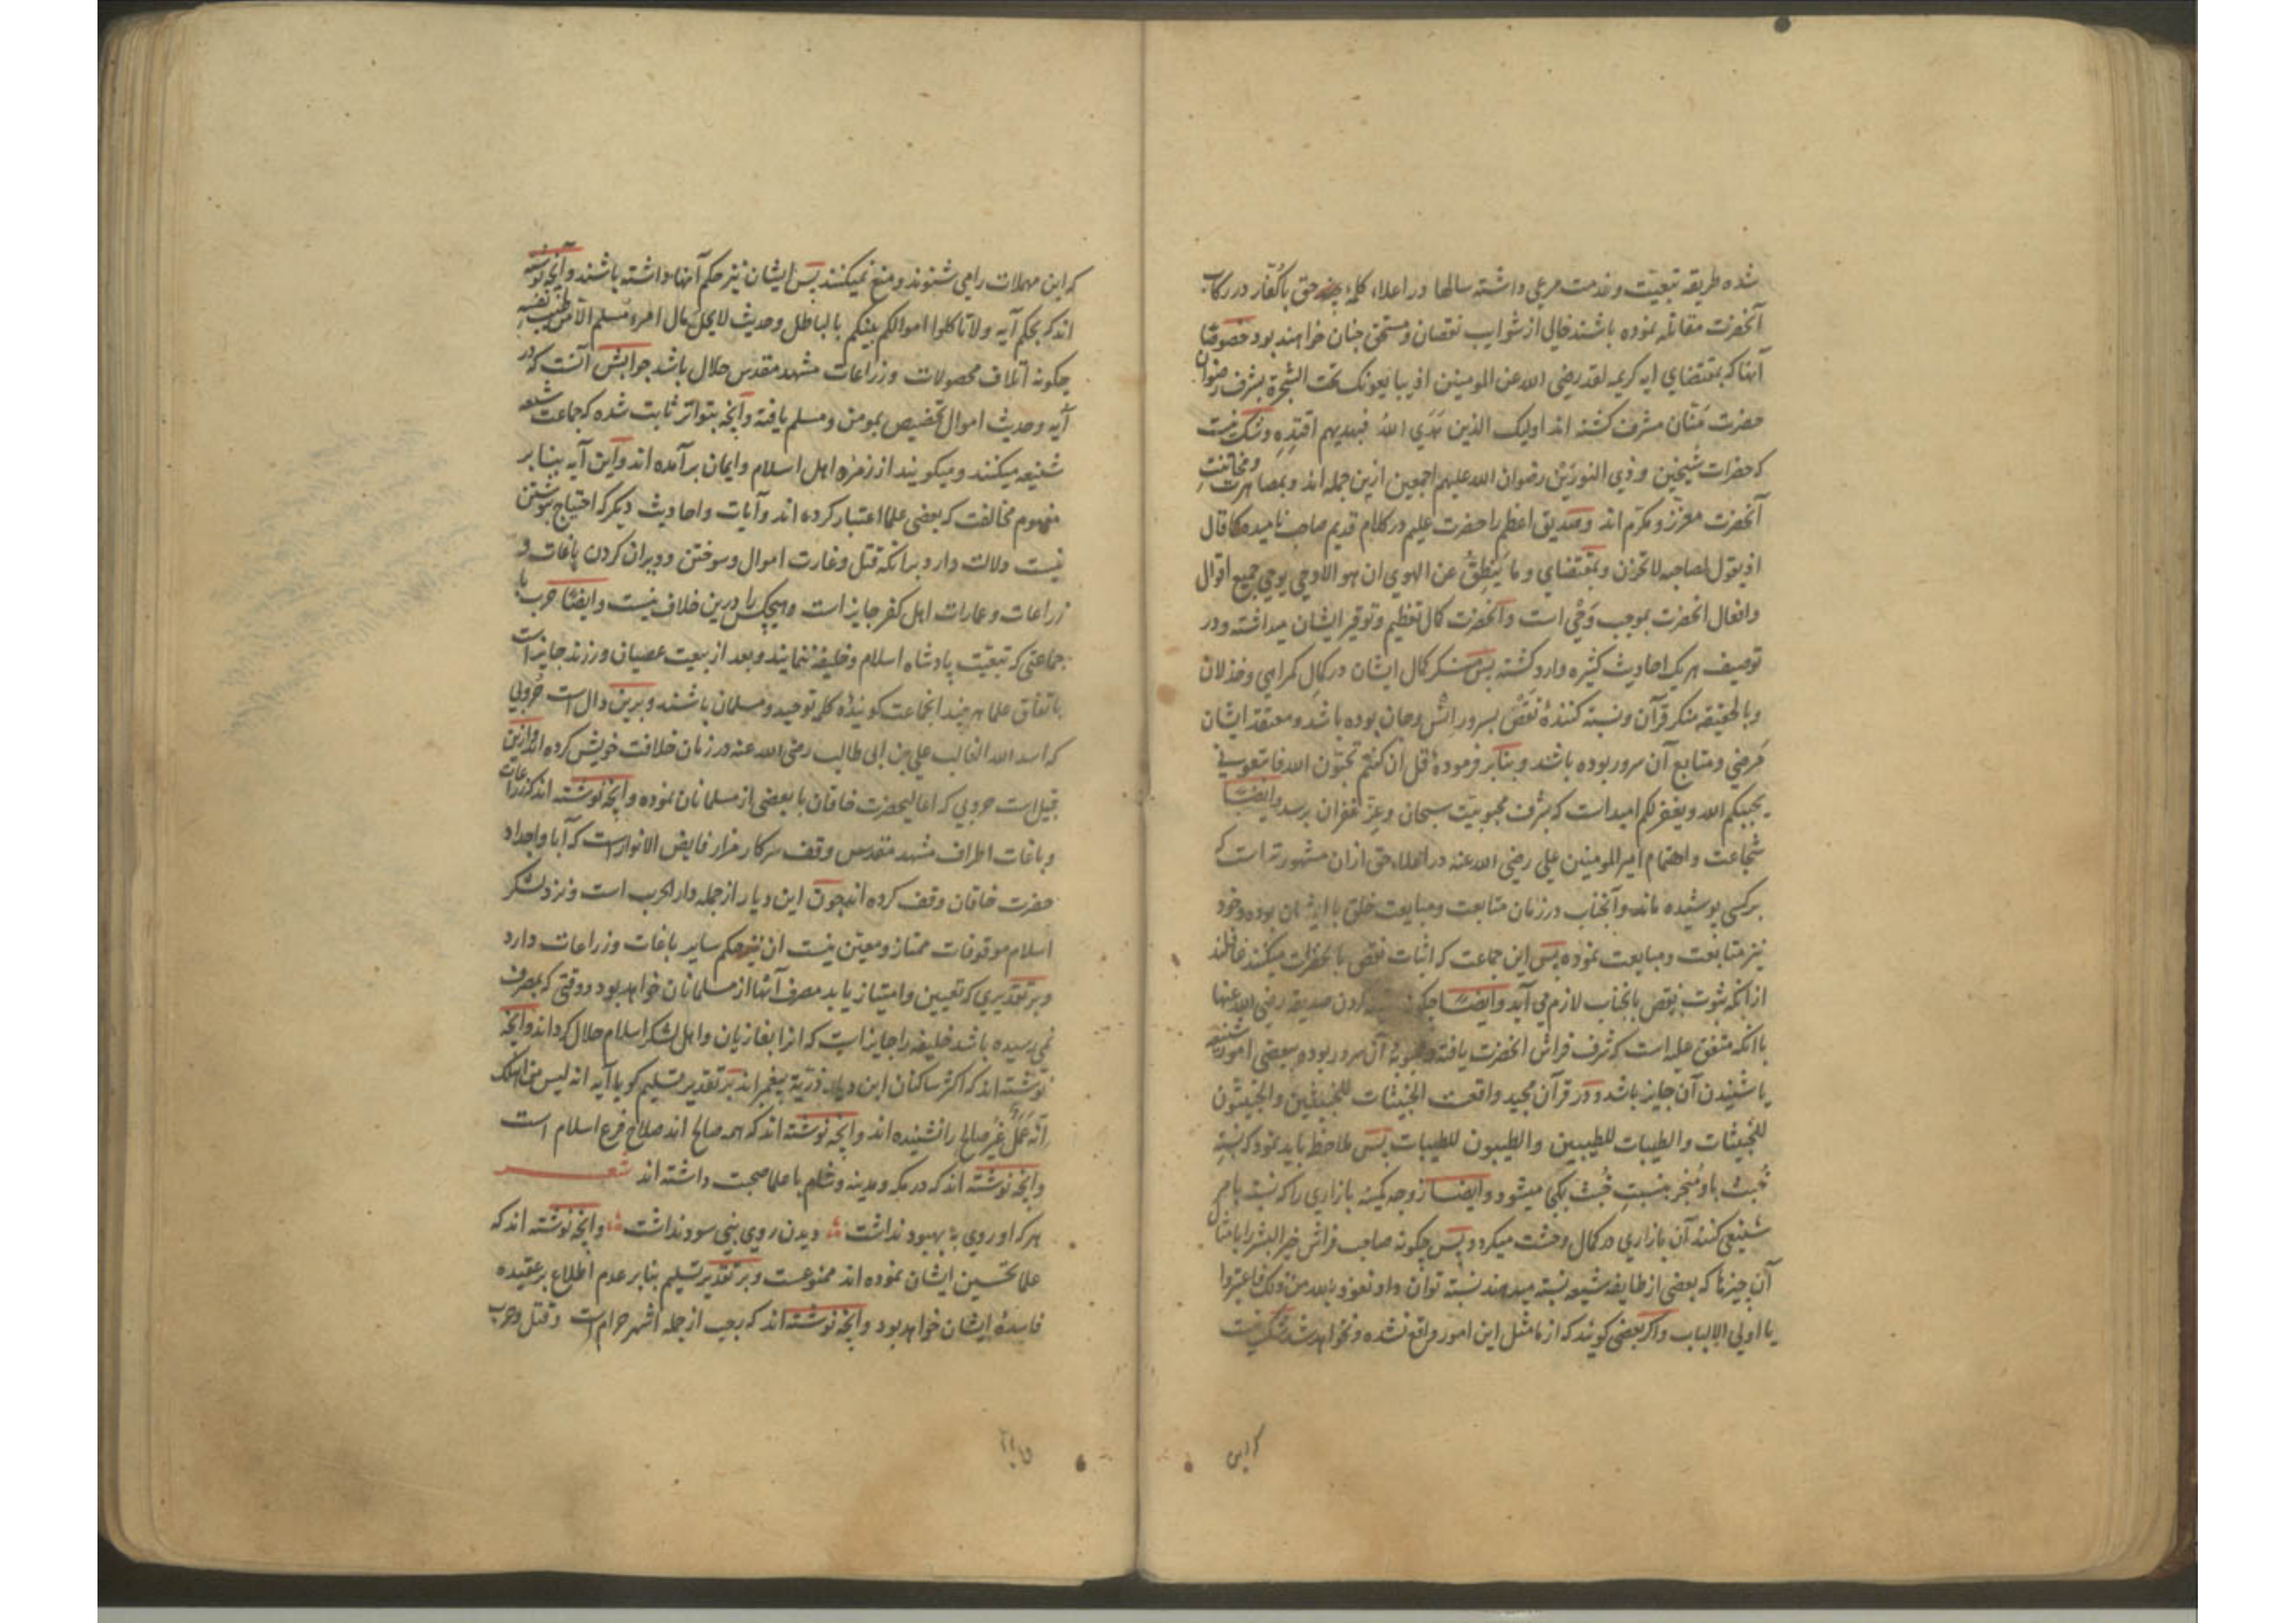 شده طریقه تبعیت و خدمت مرعی داشته سالها در اعلاء کلمه حق با کفار در رکاب
آنحضرت مقاتله نموده باشند خالی از شوایب نقصان و مستحق جنان خواهند بود خصوصا
آنها که بمقتضای ایه کریمه لقد رضی الله عن المومنین اذ یبایعونک تحت الشجرة بشرف رضوان
حضرت منّان مشرف کشته اند اولیک الذین هَدَی اللهُ فبهدیهم اقتدِه و شک نیست
که حضرات شیخین و ذی النورین رضوان الله علیهم اجمعین ازین جمله اند و بمصاهرت و مخاتنت
آنحضرت معزز و مکرم اند و صدیق اعظم را حضرت علیم در کلام قدیم صاحب نامیده کما قال
اذ یقول لصاحبه لا تحزن و بمقتضای و ما ینطِقُ عن الهوی ان هو الا وحی یوحی جمیع اقوال
و افعال انحضرت بموجب وَحْی است و آنحضرت کمال تعظیم و توقیر ایشان میداشته و در
توصیف هریک احادیث کثیره وارد کشته پس منکر کمال ایشان در کمال کمراهی و خذلان
و بالحقیقه منکر قرآن و نسبه کنندهٔ نقص بسرور انس و جان بوده باشد و معتقد ایشان
مَرضی و متابع آن سرور بوده باشد و بنابر فرمودهٔ قل ان کنتم تحبّون الله فاتبعونی
یحببکم الله و یغفر لکم امید است که بشرف محبوبیّت سبحان و عزّ غفران برسد و ایضا
شجاعت و اهتمام امیر المومنین علی رضی الله عنه در اعلاء حق ازان مشهورتر است که
برکسی پوشیده ماند و آنجناب در زمان متابعت و مبایعت خلق با ایشان بوده و خود
نیز متابعت و مبایعت نموده پس این جماعت که اثبات نقص با نحضرات میکنند غافلند
از انکه ثبوت نقص بانجناب لازم می آید و ایضا کردن صدیقه رضی الله عنها
با انکه متفق علیه است که شرف فراش انحضرت یافته و محبوبهٔ آن سرور بوده ببعضی امور شنیعه
یا شنیدن آن جایز باشد و در قرآن مجید واقعست الخبیثات للخبیثین و الخبیثون
للخبیثات و الطیبات للطیبین و الطیبون للطیبات پس ملاحظه باید نمود که نسبهِ
خُبث باو مُنجر بنسبتِ خُبث بکجا میشود و ایضا زوجه کمینه بازاری را که نسبت بامر
شنیعی کنند آن بازاری در کمال وحشت میکردد پس چکونه صاحب فراش خیر البشر را بامثال
آن چیزها که بعضی از طایفه شیعه نسبته میدهند نسبة توان داد نعوذ بالله من ذلک فاعتبروا
یا اولی الالباب و اکر بعضی کویند که از ما مثل این امور واقع نشده و نخواهد شد شک نیست
که این
که این مهملات را می شنوند و منع نمیکنند پس ایشان نیز حکم آنها داشته باشند و آنچه نوشته
اند که بحکم آیه و لا تاکلوا اموالکم بینکم بالباطل و حدیث لا یحل مال امرء مسلم الا من طیب نفسه
چکونه اتلاف محصولات و زراعات مشهد مقدس حلال باشد جوابش آنست که در
آیه و حدیث اموال تخصیص بمومن و مسلم یافته و آنچه بتواتر ثابت شده که جماعت شیعه
شنیعه میکنند و میکویند از زمره اهل اسلام و ایمان برآمده اند و این آیه بنابر
مفهوم مخالفت که بعضی علما اعتبار کرده اند و آیات و احادیث دیکر که احتیاج بنوشتن
نیست دلالت دارد برانکه قتل و غارت اموال و سوختن و ویران کردن باغات و
زراعات و عمارات اهل کفر جایز است و هیچکس را درین خلاف نیست و ایضا حرب با
جماعتی که تبعیّت پادشاه اسلام و خلیفه ننمایند و بعد از بیعت عصیان ورزند جایز است
باتفاق علما هرچند انجماعت کویندهٔ کلمه توحید و مسلمان باشند و برین دال است حروبی
که اسد الله الغالب علی بن ابی طالب رضی الله عنه در زمان خلافت خویش کرده اند و ازین
قبیل است حروبی که اعلیحضرت خاقان با بعضی از مسلمانان نموده و آنچه نوشته اند که زراعات
و باغات اطراف مشهد مقدس وقف سرکار مزار فایض الانوار است که آبا و اجداد
حضرت خاقان وقف کرده اند چون این دیار از جمله دار الحرب است و نزد لشکر
اسلام موقوفات ممتاز و معیّن نیست ان نیز حکم سایر باغات و زراعات دارد
و بر تقدیری که تعیین و امتیاز یابد مصرف آنها از مسلمانان خواهد بود و وقتی که بمصرف
نمی رسیده باشد خلیفه را جایز است که انرا بغازیان و اهل لشکر اسلام حلال کرداند و آنچه
نوشته اند که اکثر ساکنان این دیار ذرّیة پیغمبر اند بر تقدیر تسلیم کویا آیه انه لیس من اهلک
انّه عَمَلٌ غیرُ صالح را نشنیده اند و آنچه نوشته اند که همه صالح اند صلاح فرع اسلام است
و آنچه نوشته اند که در مکه و مدینه و شام با علما صحبت داشته اند شعر
هرکه او روی به بهبود نداشت دیدن روی نبی سود نداشت و آنچه نوشته اند که
علما تحسین ایشان نموده اند ممنوعست و بر تقدیر تسلیم بنابر عدم اطلاع بر عقیده
فاسدهٔ ایشان خواهد بود و آنچه نوشته اند که رجب از جمله اشهر حرام است و قتل و حرب